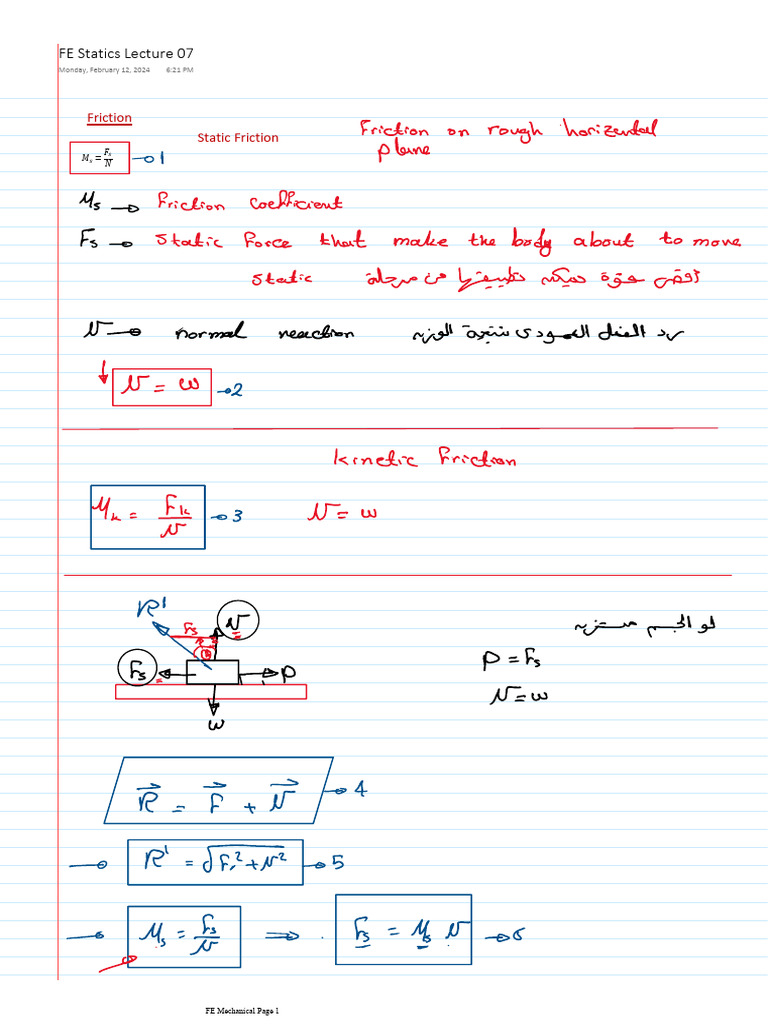 FE Statics Lecture 07
Monday, February 12, 2024 6:21 PM
Friction
Static Friction
Friction on rough horizental plane
Mₛ = Fₛ/N → 1
Mₛ → Friction coefficient
Fₛ → Static Force that make the body about to move
اقصى قوة ممكن تطبيقها من مرحلة static
N → normal reaction رد الفعل العمودى نتيجة الوزن
N = w → 2
kinetic Friction
Mₖ = Fₖ/N → 3
N = w
R' Fs N
Fs P
w
لو الجسم متزن
P = Fₛ
N = w
R = F + N → 4
R' = √Fᵣ² + N² → 5
Mₛ = Fₛ/N ⇒ Fₛ = Mₛ N → 6
FE Mechanical Page 1